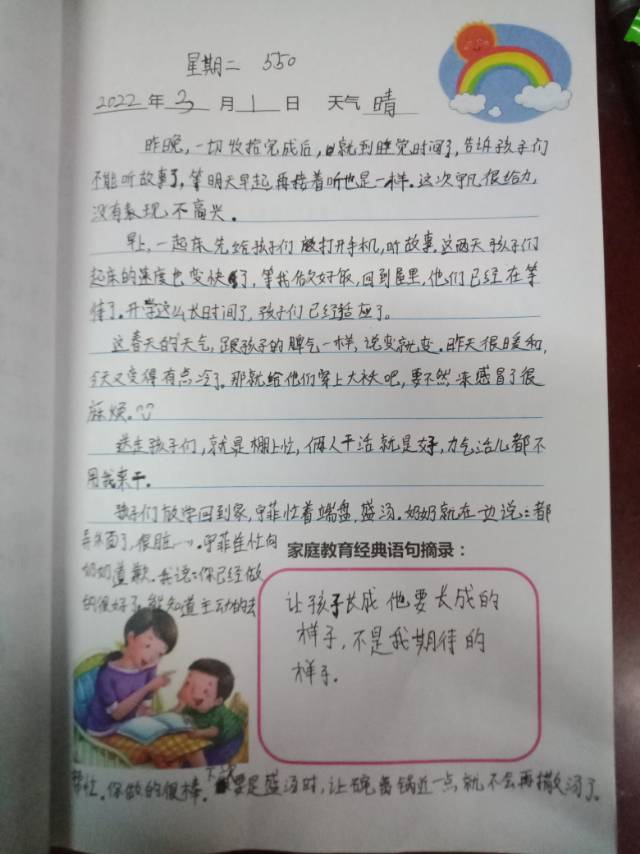 星期二 550
2022 年 3 月 1 日 天气 晴
昨晚,一切收拾完成后,就到睡觉时间了,告诉孩子们
不能听故事了,等明天早起,再接着听也是一样。这次宇凡很给力,
没有表现,不高兴。
早上,一起床先给孩子们打开手机,听故事。这两天孩子们
起床的速度也变快了,等我做好饭,回到屋里,他们已经在等
候了。开学这么长时间了,孩子们已经适应了。
这春天的天气,跟孩子的脾气一样,说变就变。昨天很暖和,
今天又变得有点冷了。那就给他们穿上大袄吧,要不然来感冒了很
麻烦。
送走孩子们,就是棚上忙,俩人干活就是好,力气活儿都不
用我来干。
孩子们放学回到家,宇菲忙着端盘,盛汤。奶奶就在一边说:都
弄外面了,很脏…。宇菲连忙向
奶奶道歉。我说:你已经做
的很好了,能知道主动的去
帮忙。你做的很棒。下次要是盛汤时,让碗离锅近一点,就不会再撒汤了。
家庭教育经典语句摘录:
让孩子长成他要长成的
样子,不是我期待的
样子。